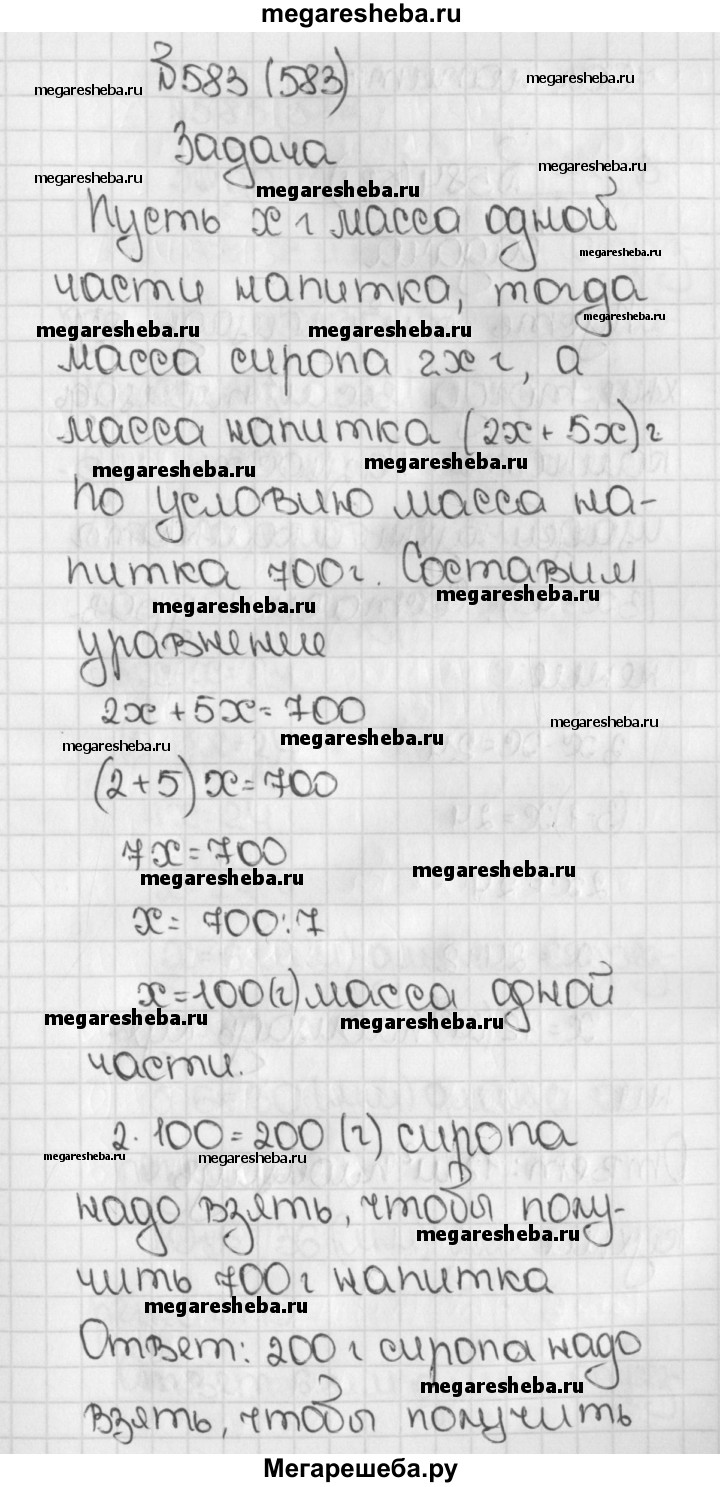 megaresheba.ru
№583 (583)
megaresheba.ru megaresheba.ru
Задача
megaresheba.ru megaresheba.ru megaresheba.ru
Пусть x г масса одной
megaresheba.ru
части напитка, тогда
megaresheba.ru megaresheba.ru megaresheba.ru
масса сиропа 2x г, а
масса напитка (2x + 5x) г
megaresheba.ru megaresheba.ru
По условию масса на-
питка 700 г. Составим
megaresheba.ru megaresheba.ru
уравнение
2x + 5x = 700
megaresheba.ru megaresheba.ru megaresheba.ru
(2+5) x = 700
7x = 700
megaresheba.ru megaresheba.ru
x = 700:7
x = 100 (г) масса одной
megaresheba.ru megaresheba.ru
части.
2 · 100 = 200 (г) сиропа
megaresheba.ru megaresheba.ru megaresheba.ru
надо взять, чтобы полу-
megaresheba.ru
чить 700 г напитка
megaresheba.ru
Ответ: 200 г сиропа надо
megaresheba.ru
взять, чтобы получить
Мегарешеба.ру